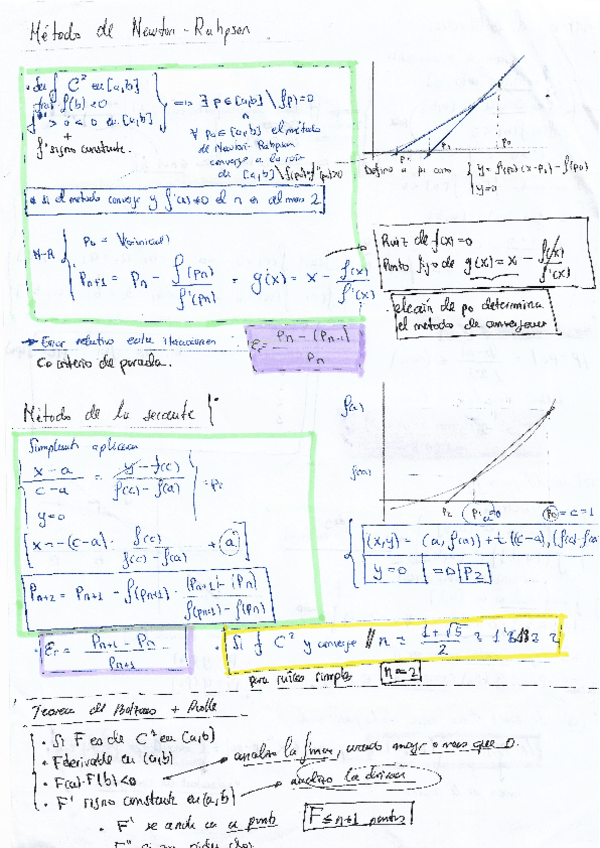 Método de Newton-Rahpson
· Sea f C² en [a,b]
f(a)·f(b)<0
f'' >0 ó <0 en [a,b]
+
f' signo constante.
=> ∃ p∈[a,b] \ f(p)=0
∀ p₀∈[a,b] el método
de Newton-Rahpson
converge a la raíz
de [a,b] \ f(p₀)f''(p₀)>0
* si el metodo converge y f'(a)≠0 el n es al menos 2
N-R
p₀ = V(inicial)
Pn+1 = Pn - f(pn)/f'(pn) = g(x) = x - f(x)/f'(x)
P₂ P₁ P₀
Defino a p₁ como { y = f'(p₀)(x-p₀) - f(p₀)
y=0
Raiz de f(x)=0
Punto fijo de g(x) = x - f(x)/f'(x)
· elección de p₀ determina
el metodo de converjencia
→ Error relativo entre iteraciones :
Criterio de parada.
Er = Pn - (Pn-1) / Pn
Método de la secante
Simplemente aplicar
x-a / c-a = y-f(c) / f(c)-f(a)
y=0
= P₂
x = -(c-a) · f(c) / f(c)-f(a) + (a)
Pn+2 = Pn+1 - f(pn+1) · (Pn+1)-(Pn) / f(pn+1)-f(pn)
f(c)
f(a)
P₂ (P₁ a=0 (P₀)=c=1
(x,y) = (a, f(a)) + t ((c-a), (f(c)-f(a)
y=0 => P₂
· Er = Pn+1 - Pn / Pn+1
· Si f C² y converge // n = 1+√5 / 2 ≈ 1'6
para raíces simples n=2
Teorema de Bolzano + Rolle
· Si F es de C¹ en [a,b]
· F derivable en (a,b)
· F(a)·F(b)<0
· F' signo constante en (a,b)
analizo la func, cuando mayor o menor que 0.
analizo la derivada
· F' se anula en n puntos
F ≤ n+1 puntos